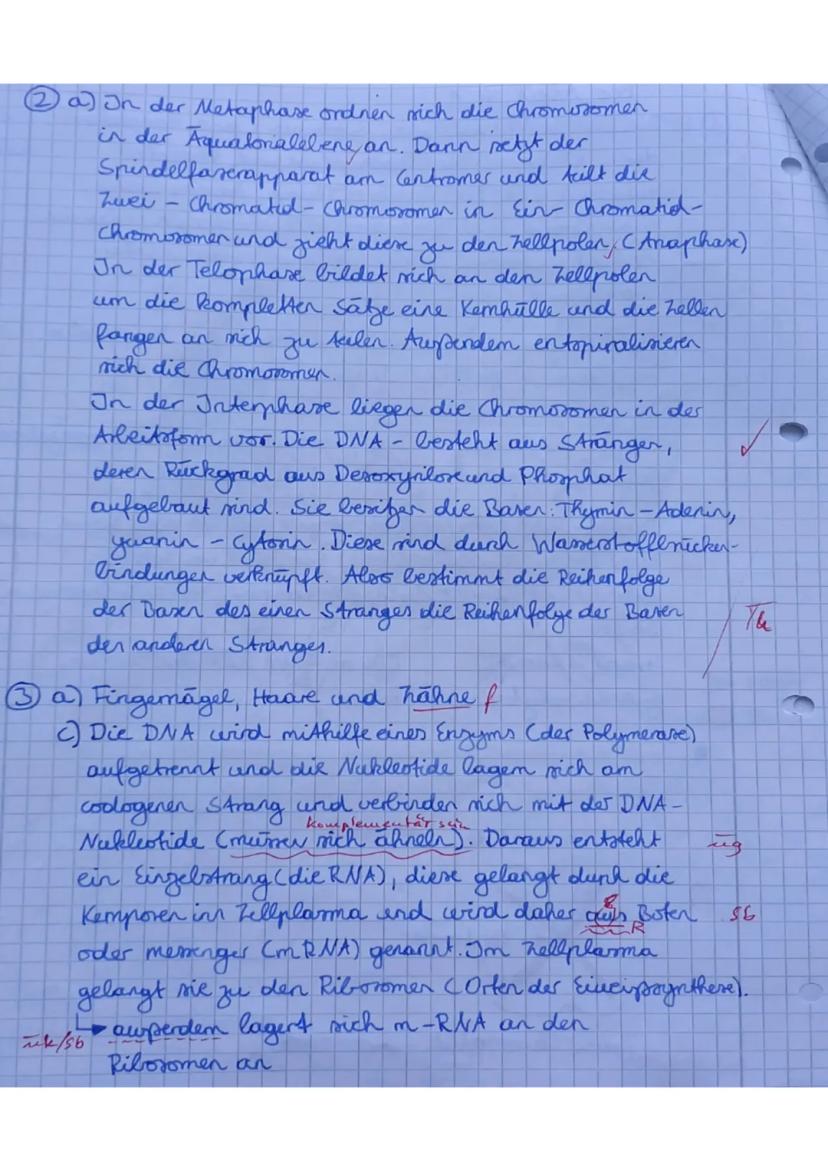 ② a) In der Metaphase ordnen sich die Chromosomen
in der Äquatorialebene, an. Dann setzt der
Spindelfaserapparat am Centromer und teilt die
Zwei - Chromatid - Chromosomen in Ein - Chromatid-
Chromosomen und zieht diese zu den Zellpolen, (Anaphase)
In der Telophase bildet sich an den Zellpolen
um die kompletten Sätze eine Kernhülle und die Zellen
fangen an sich zu teilen. Außerdem entspiralisieren
sich die Chromosomen.
In der Interphase liegen die Chromosomen in der
Arbeitsform vor. Die DNA - besteht aus Strängen, ✓
deren Rückgrad aus Desoxyribose und Phosphat
aufgebaut sind. Sie besitzen die Basen: Thymin - Adenin,
Guanin - Cytosin. Diese sind durch Wasserstoffbrücken-
bindungen verknüpft. Also bestimmt die Reihenfolge
der Basen des einen Stranges die Reihenfolge der Basen
des anderen Stranges.
③ a) Fingernägel, Haare und Zähne f
c) Die DNA wird mithilfe eines Enzyms (der Polymerase)
aufgetrennt und die Nukleotide lagern sich am
codogenen Strang und verbinden sich mit der DNA -
komplementär sein
Nukleotide (müssen sich ähneln). Daraus entsteht ug
ein Einzelstrang (die RNA), diese gelangt durch die
Kernporen ins Zellplasma und wird daher auch Boten R sb
oder messenger (mRNA) genannt. Im Zellplasma
gelangt sie zu den Ribosomen (Orten der Eiweißsynthese).
sb ↳ außerdem lagert sich m-RNA an den
Ribosomen an